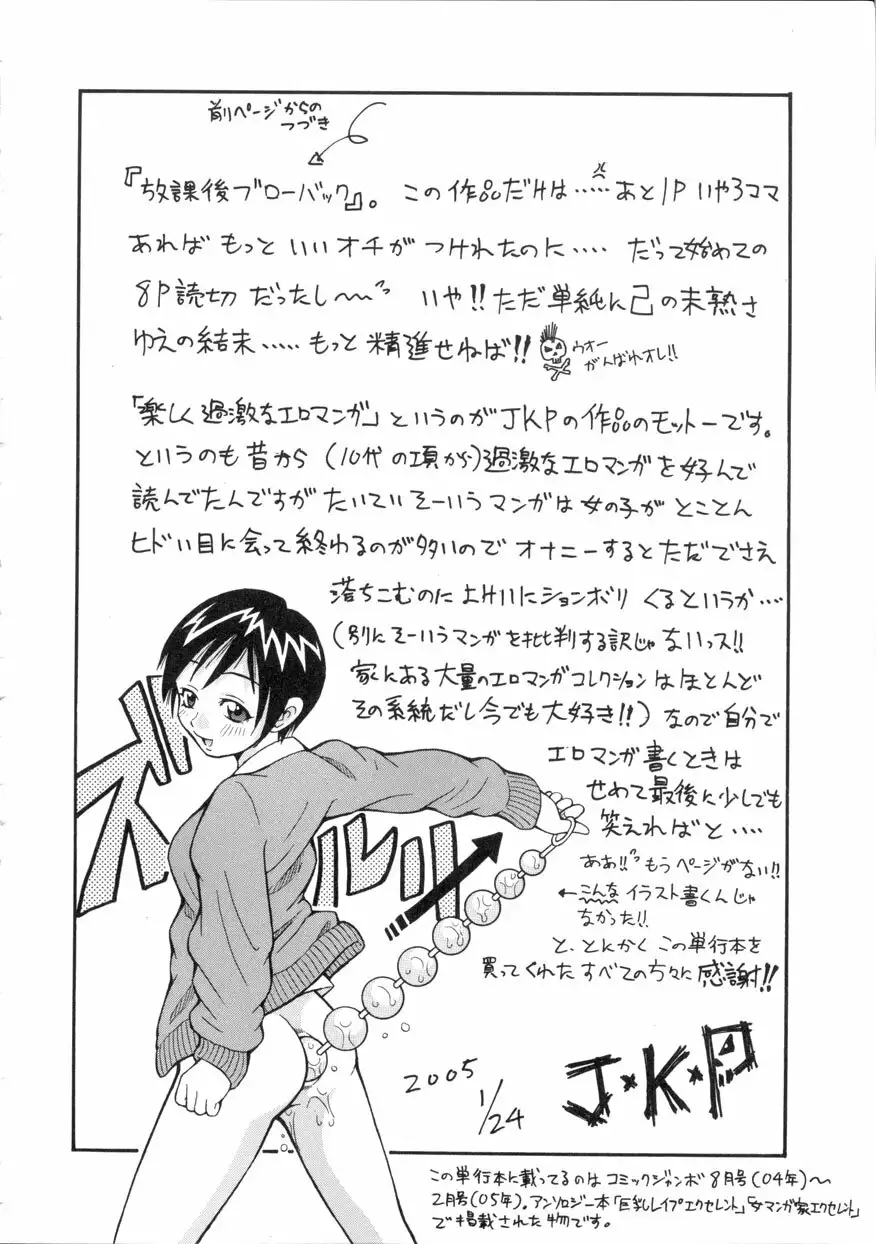 前ページからの
つづき
『放課後ブローバック』。この作品だけは……あと1P いやろコマ
あればもっといいオチがつけれたのに‥‥ だって始めての
8P読切だったし〜〜 いや!!ただ単純に己の未熟さ
ゆえの結末‥‥‥もっと精進せねば!!
ウオー
がんばれオレ!!
「楽しく過激なエロマンガ」というのがJKPの作品のモットーです。
というのも昔から(10代の項から)過激なエロマンガを好んで
読んでたんですがたいていそーいうマンガは女の子がとことん
ヒドい目に会って終わるのが多いのでオナニーするとただでさえ
落ちこむのによけいにションボリくるというか‥‥
(別にそーいうマンガを批判する訳じゃないっス!!
家にある大量のエロマンガコレクションはほとんど
その系統だし今でも大好き!!)なので自分で
エロマンガ書くときは
せめて最後に少しでも
笑えればと‥‥
ああ!!もうページがない!!
←こんなイラスト書くんじゃ
なかった!!
と、とんかくこの単行本を
買ってくれたすべての方々に感謝!!
ズルルリ
2005
1/24
J・K・P
この単行本に載ってるのはコミックジャンボ8月号(04年)〜
2月号(05年)。アンソロジー本「巨乳レイプエクセレント」「女マンガ家エクセレント」
で掲載された物です。